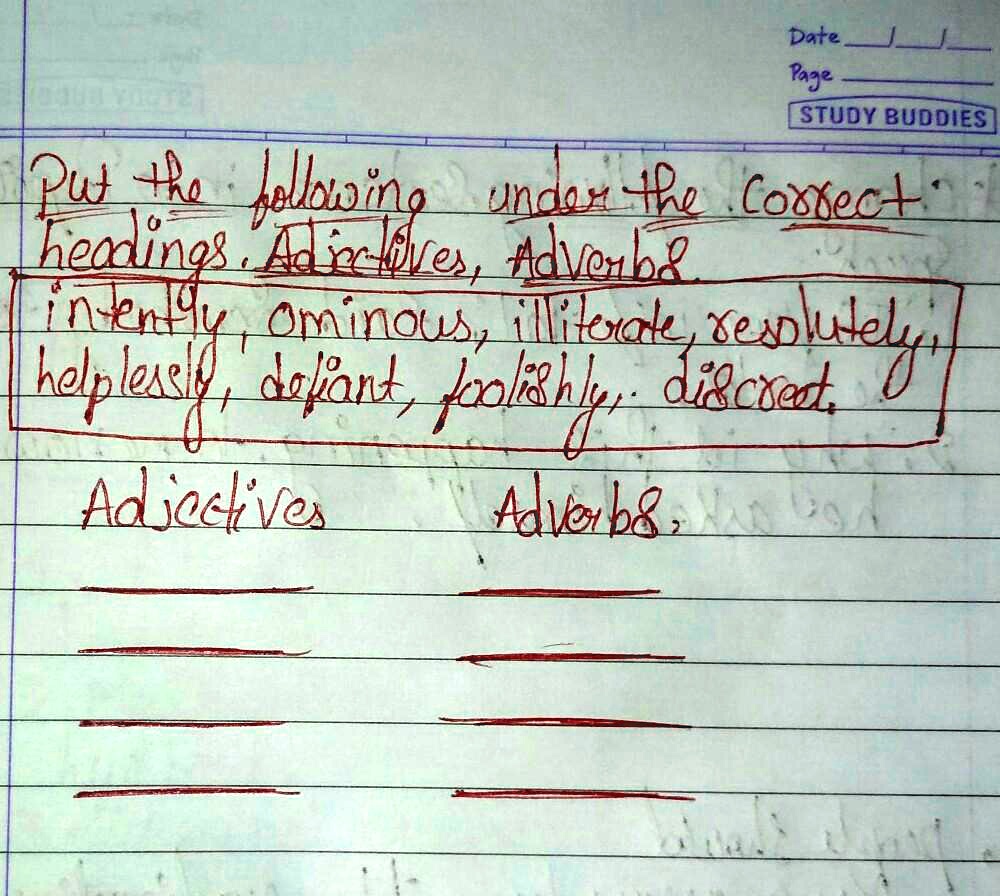 Date __/__/__
Page ______
STUDY BUDDIES
Put the following under the correct
headings. Adjectives, Adverbs.
intently, ominous, illiterate, resolutely,
helplessly, defiant, foolishly, discreet.
Adjectives Adverbs.